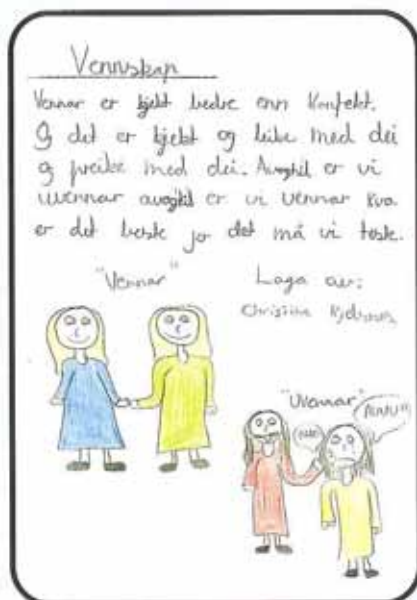 Vennskap
Vennar er kjekt bedre enn konfekt.
Og det er kjekt og leike med dei
og preike med dei. Avogtil er vi
uvennar avogtil er vi vennar kva
er det beste jo det må vi teste.
"Vennar"
Laga av:
Christina
"Uvennar"